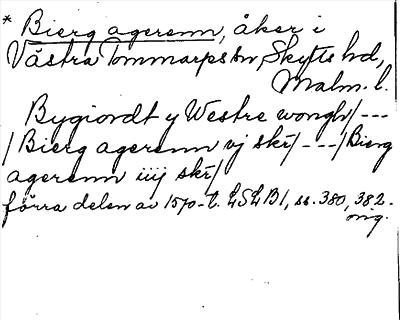 * Bierg agerenn, åker i
Västra Tommarps sn, Skytts hd,
Malm. l.
Bygiordt y Westre wongh/ ---
/ Bierg agerenn vj skr/ ---/ Bierg
agerenn iiij skr/
förra delen av 1570-t. LSLB1, ss. 380, 382.
orig.